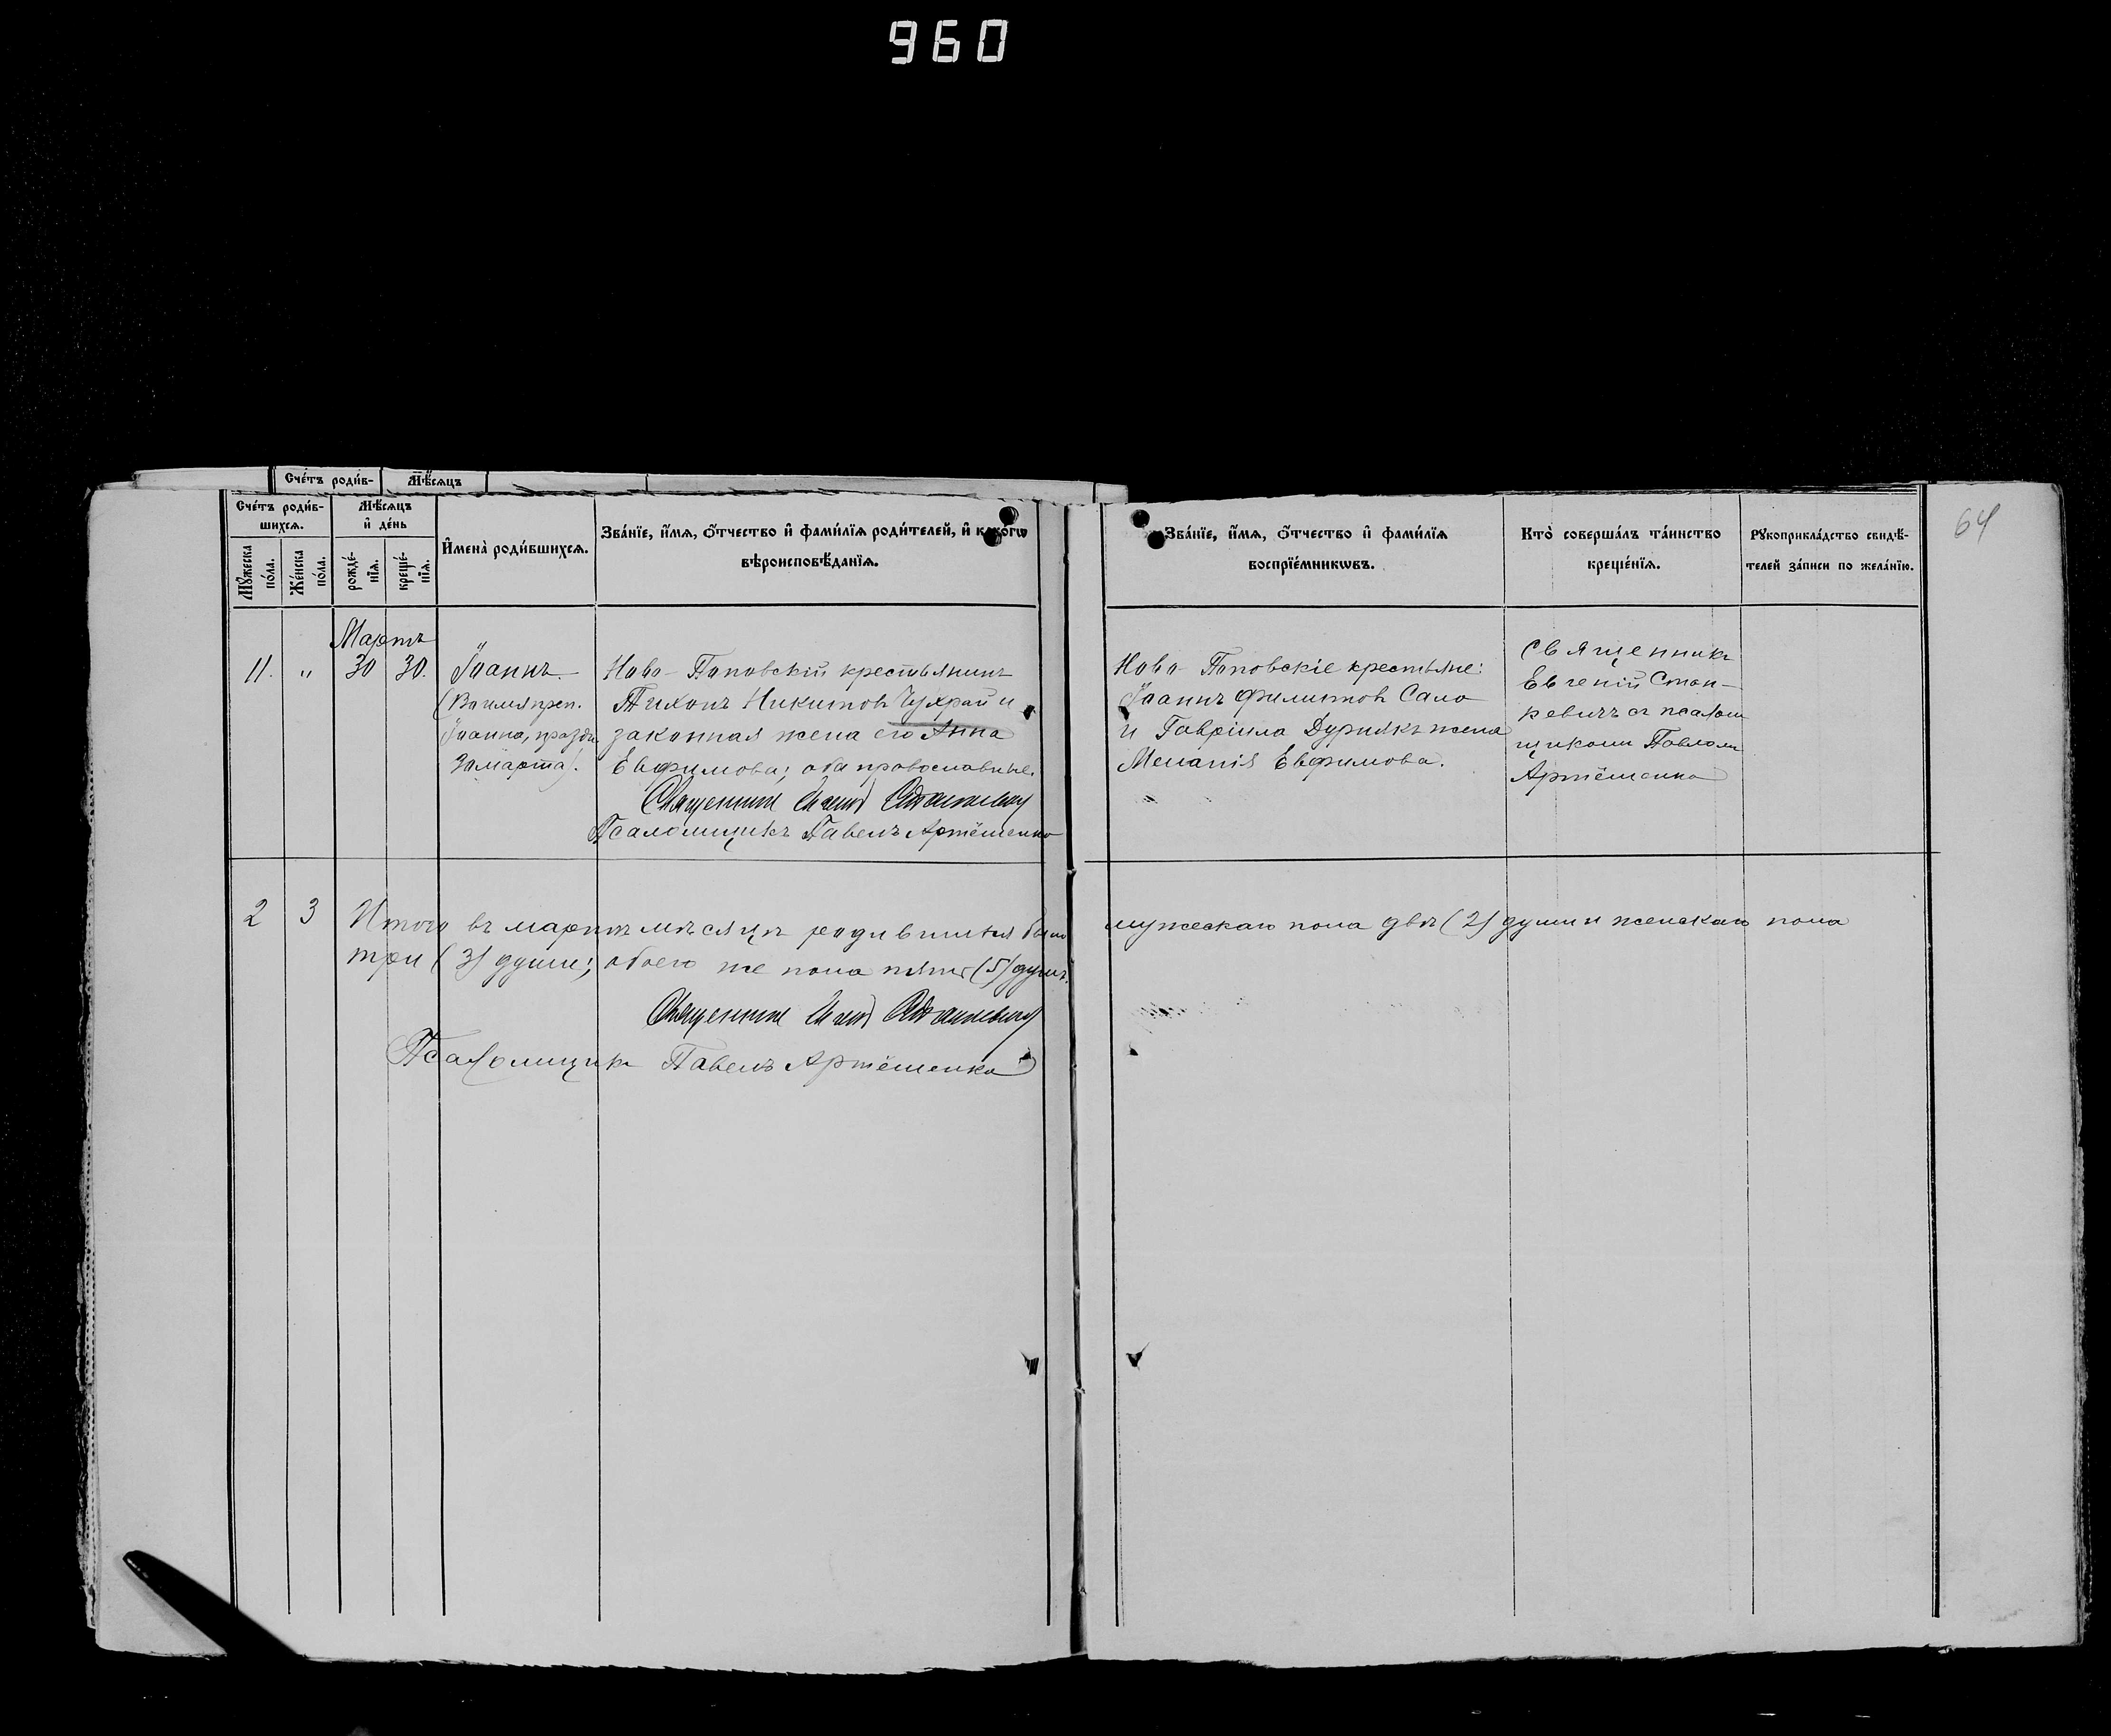 960
Сче́тъ роди́в-
Мѣ́сяцъ
64
Сче́тъ роди́в-
шихся.
Мѣ́сяцъ
и҆ де́нь
Мꙋ́жеска по́ла.
Же́нска по́ла.
рожде́-нїѧ.
креще́-нїѧ.
И҆мена̀ роди́вшихсѧ.
Зва́нїе, и҆́мѧ, ѻ҆́тчество и҆ фами́лїѧ роди́телей, и҆ како́гѡ
вѣроисповѣ́данїѧ.
Зва́нїе, и҆́мѧ, ѻ҆́тчество и҆ фами́лїѧ
воспрїе́мникѡвъ.
Кто̀ соверша́лъ та́инство
креще́нїѧ.
Рꙋкоприкла́дство свидѣ́-
телей за́писи по жела́нїю.
Мартъ
11. " 30 30. Іоаннъ
(Во имя преп.
Іоанна, праздн.
30 марта).
Ново-Поповскій крестьянинъ
Тихонъ Никитовъ Чухрай и
законная жена его Анна
Евфимова; оба православные.
Священникъ Евгеній Станкевичъ
Псаломщикъ Павелъ Артёменко
Ново-Поповскіе крестьяне:
Іоаннъ Филиповъ Сало
и Гавріила Дурнякъ жена
Меланія Евфимова.
Священникъ
Евгеній Стан-
кевичъ съ псалом
щикомъ Павломъ
Артёменко
2 3 Итого въ мартѣ мѣсяцѣ родившихся было мужескаго пола двѣ (2) души и женскаго пола
три (3) души; обоего же пола пять (5) душъ.
Священникъ Евгеній Станкевичъ
Псаломщикъ Павелъ Артёменко